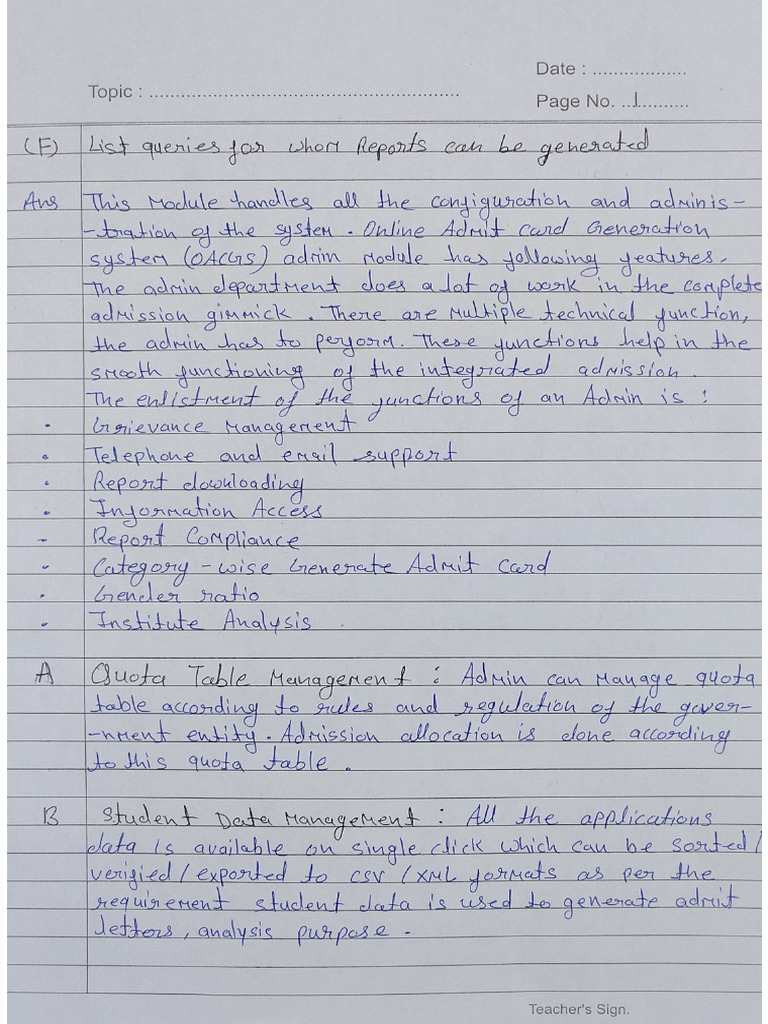 Date : ..................
Topic : ........................................................
Page No. ..1..........
(F) List queries for whom Reports can be generated
Ans This Module handles all the configuration and adminis-
-tration of the system. Online Admit Card Generation
system (OACGS) admin Module has following features.
The admin department does a lot of work in the complete
admission gimmick. There are Multiple technical function,
the admin has to perform. These functions help in the
smooth functioning of the integrated admission.
The enlistment of the functions of an Admin is :
• Grievance Management
• Telephone and email support
• Report downloading
• Information Access
- Report Compliance
- Category - wise Generate Admit Card
• Gender ratio
- Institute Analysis .
A Quota Table Management : Admin can Manage quota
table according to rules and regulation of the gover-
-nment entity. Admission allocation is done according
to this quota table.
B Student Data Management : All the applications
data is available on single click which can be sorted/
verified/exported to CSV/XML formats as per the
requirement student data is used to generate admit
letters, analysis purpose.
Teacher's Sign.